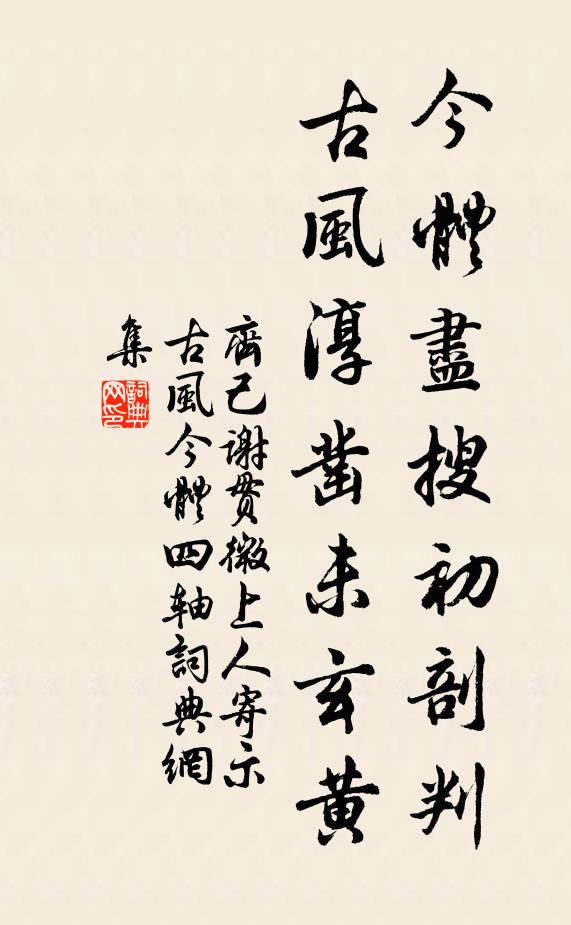 今體盡搜初剖判
古風淳鑿未玄黃
齊己謝貫微上人寄示
古風今體四轴詞典網
集
詞典
网印